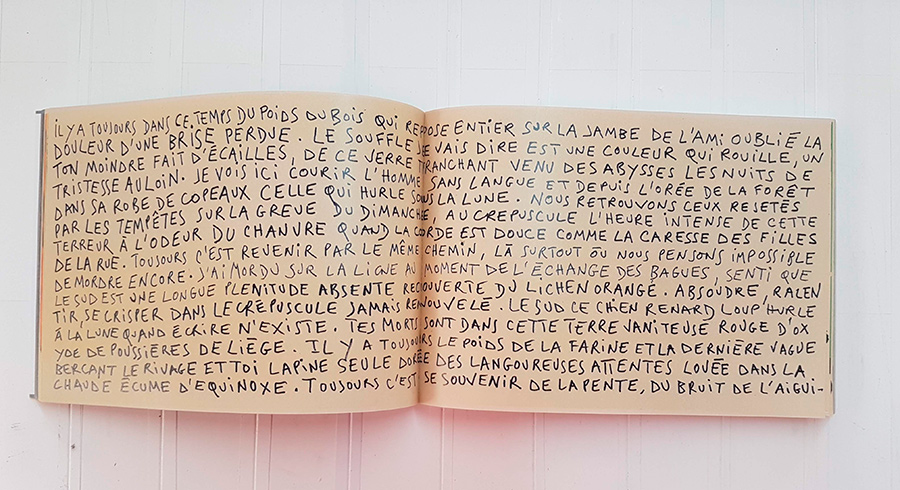 IL Y A TOUJOURS DANS CE TEMPS DU POIDS DU BOIS QUI REPOSE ENTIER SUR LA JAMBE DE L'AMI OUBLIÉ LA
DOULEUR D'UNE BRISE PERDUE. LE SOUFFLE JE VAIS DIRE EST UNE COULEUR QUI ROUILLE, UN
TON MOINDRE FAIT D'ÉCAILLES, DE CE VERRE TRANCHANT VENU DES ABYSSES LES NUITS DE
TRISTESSE AU LOIN. JE VOIS ICI COURIR L'HOMME SANS LANGUE ET DEPUIS L'ORÉE DE LA FORÊT
DANS SA ROBE DE COPEAUX CELLE QUI HURLE SOUS LA LUNE. NOUS RETROUVONS CEUX REJETÉS
PAR LES TEMPÊTES SUR LA GREVE DU DIMANCHE, AU CREPUSCULE L'HEURE INTENSE DE CETTE
TERREUR À L'ODEUR DU CHANVRE QUAND LA CORDE EST DOUCE COMME LA CARESSE DES FILLES
DE LA RUE. TOUJOURS C'EST REVENIR PAR LE MÊME CHEMIN, LÀ SURTOUT OÙ NOUS PENSONS IMPOSSIBLE
DE MORDRE ENCORE. J'AI MORDU SUR LA LIGNE AU MOMENT DE L'ÉCHANGE DES BAGUES, SENTI QUE
LE SUD EST UNE LONGUE PLENITUDE ABSENTE RECOUVERTE DU LICHEN ORANGÉ. ABSOUDRE, RALEN
TIR, SE CRISPER DANS LE CRÉPUSCULE JAMAIS RENOUVELÉ. LE SUD CE CHIEN RENARD LOUP HURLE
À LA LUNE QUAND ÉCRIRE N'EXISTE. TES MORTS SONT DANS CETTE TERRE VANITEUSE ROUGE D'OX
YDE DE POUSSIÈRES DE LIÈGE. IL Y A TOUJOURS LE POIDS DE LA FARINE ET LA DERNIÈRE VAGUE
BERÇANT LE RIVAGE ET TOI LAPINE SEULE DORÉE DES LANGOUREUSES ATTENTES LOVÉE DANS LA
CHAUDE ÉCUME D'EQUINOXE. TOUJOURS C'EST SE SOUVENIR DE LA PENTE, DU BRUIT DE L'AIGUI-